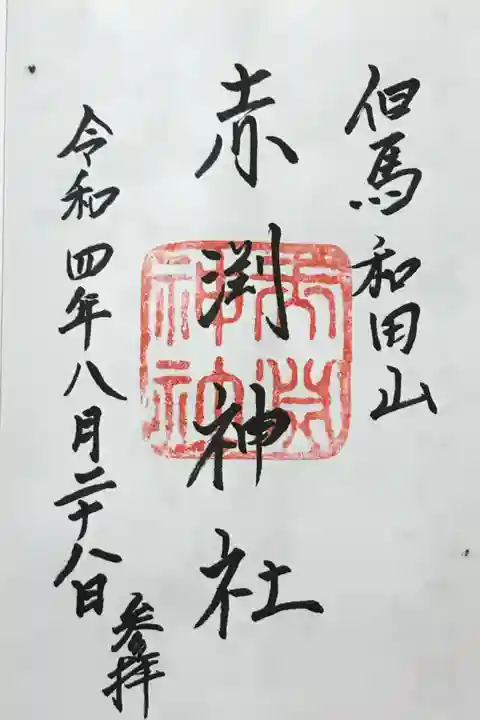 但馬和田山
赤渕神社
令和四年八月二十八日
参拝
赤渕神社